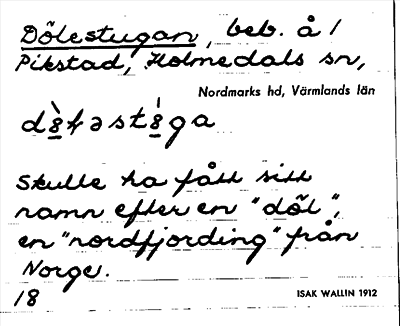 Dölestugan, beb. å /
Pikstad, Holmedals sn,
Nordmarks hd, Värmlands län
Skulle ha fått sitt
namn efter en "döl",
en "nordfjording" från
Norge.
18
ISAK WALLIN 1912